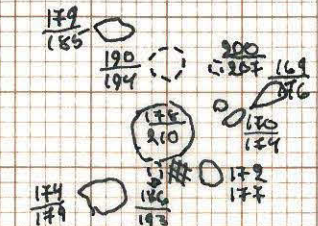 179
185
190
194
200
207
169
176
170
174
178
210
172
177
174
179
176
193